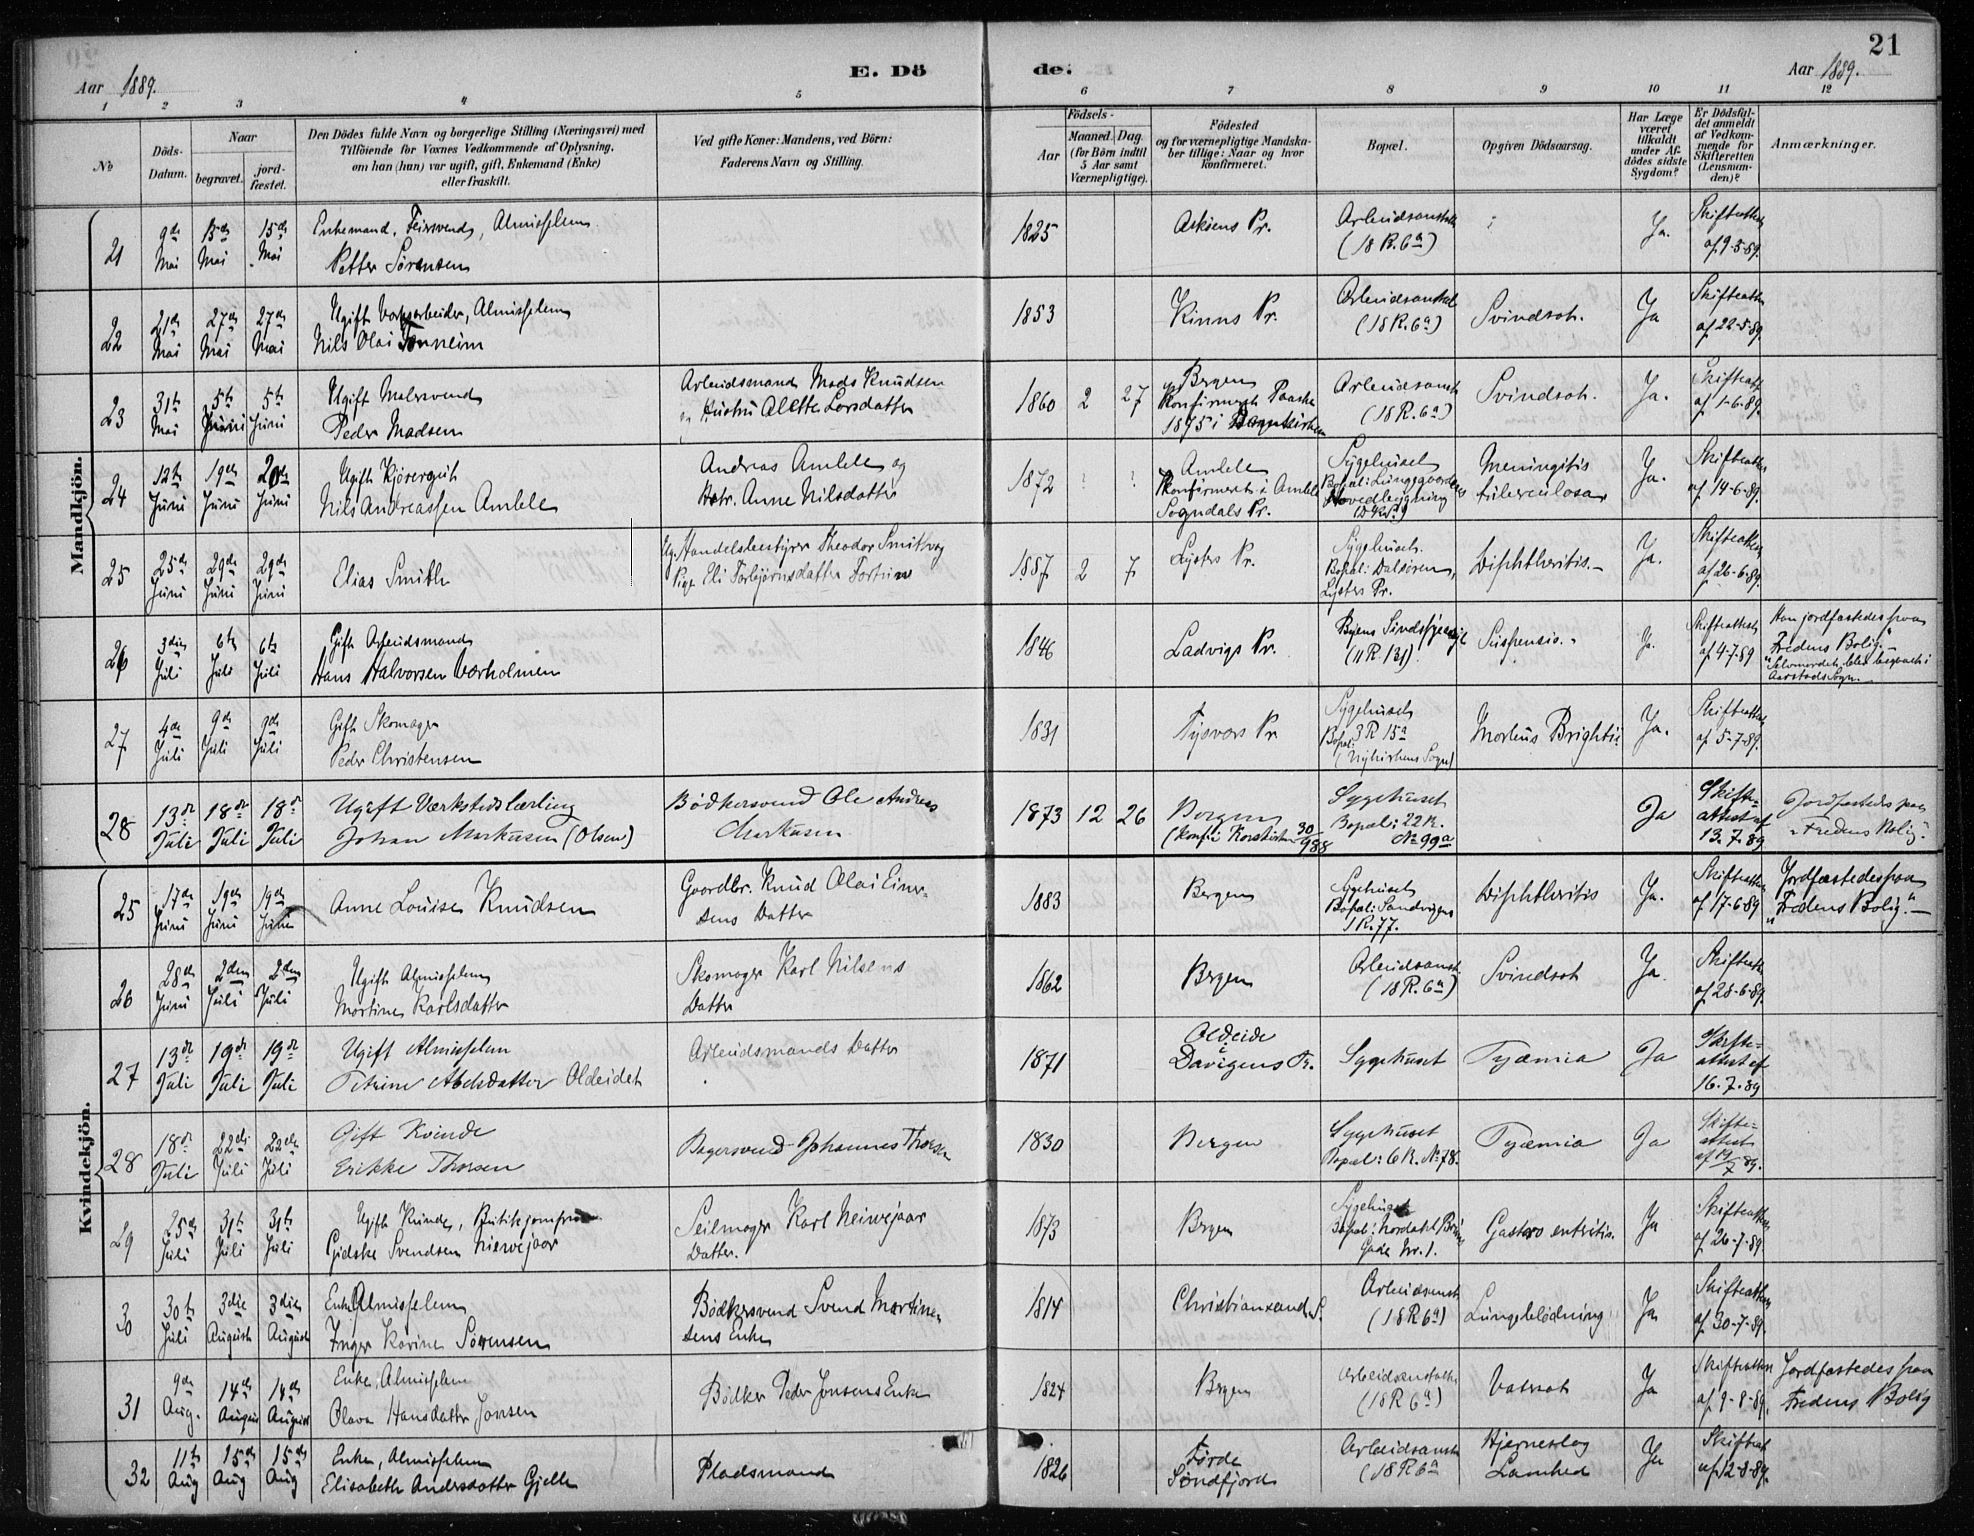 21
E. Dö de.
Aar 1889.
Aar 1889.
1 2 3 4 5 6 7 8 9 10 11 12
No
Döds-Datum.
Naar
begravet.
jordfæstet.
Den Dödes fulde Navn og borgerlige Stilling (Næringsvei) med
Tilföiende for Voxnes Vedkommende af Oplysning,
om han (hun) var ugift, gift, Enkemand (Enke)
eller fraskilt.
Ved gifte Koner: Mandens, ved Börn:
Faderens Navn og Stilling.
Födsels-
Aar
Maaned. Dag.
(for Börn indtil
5 Aar samt
Værnepligtige).
Födested
og for værnepligtige Mandskaber tillige: Naar og hvor
konfirmeret.
Bopæl.
Opgiven Dödsaarsag.
Har Læge
været
tilkaldt
under Afdödes sidste
Sygdom?
Er Dödsfaldet anmeldt
af Vedkommende for
Skifteretten
(Lensmanden)?
Anmærkninger.
Mandkjön.
21 9de Mai 15de Mai 15de Mai Enkemand, Almisselem Petter Sörensen 1825 Askøens Pr. Arbeidsanstalt (18 R. 6a) Ja. Skifteattest af 9-5-89.
22 21de Mai 27de Mai 27de Mai Ugift Almisselem Nils Olai 1853 Kinns Pr. Arbeidsanstalt (18 R. 6a) Svindsot. Ja Skifteattest af 22-5-89.
23 31te Mai 5te Juni 5te Juni Ugift Malersvend Peder Madsen Arbeidsmand Mads Knudsen og Hustru Alette Larsdatter 1860 2 27 Bergen Konfirmert Paaske 1875 i Arbeidsanst (18 R. 6a) Svindsot. Ja. Skifteatt af 1-6-89.
24 12te Juni 19de Juni 20de Juni Ugift Kjøregut Nils Andreassen Amble Andreas Amble og Hstr. Anne Nilsdatter 1872 ? ? Amble Konfirmert i Amble Sogndals Pr. Sygehuset Bopæl: Lungegaardens Hovedbygning Meningitis tuberculosa Ja. Skifteattest af 14-6-89.
25 25de Juni 29de Juni 29de Juni Elias Smith Ug. Handelsbestyrer Theodor Smith og Pige Eli Torbjørnsdatter Fortun 1887 2 7 Lysters Pr. Sygehuset. Bopæl: Dalsøren, Lysters Pr. Diphtheritis. Ja. Skifteattest af 26-6-89.
26 3die Juli 6te Juli 6te Juli Gift Arbeidsmand Hans Halvorsen Værholmen 1846 Ladvigs Pr. Byens Sindssygeasyl (11 R. 131). Suspensio. Ja. Skifteattest af 4-7-89 Han jordfæstedes paa Fredens Bolig. Selvmordet, blev begravet i Aarstads Sogn.
27 4de Juli 9de Juli 9de Juli Gift Skomager Peder Christensen 1831 Tysværs Pr Sygehuset Bopæl: 3 R 15a (Nykirkens Sogn) Morbus Brightii Ja. Skifteattest af 5-7-89.
28 13de Juli 18de Juli 18de Juli Ugift Værkstedslærling Johan Markusen (Olsen) Bödkersvend Ole Andreas Markusen 1873 12 26 Bergen (konf. i Korskirken 30/9 88 Sygehuset Bopæl: 22 R. No 99a Ja Skifteattest af 13.7.89 Jordfæstedes paa "Fredens Bolig".
Kvindekjön.
25 17de Juni 19de Juni 19de Juni Anne Louise Knudsen Gaardbr. Knud Olai Einersens Datter 1883 Bergen Sygehuset Bopæl: Sandvigen 1 R. 77. Diphtheritis Ja. Skifteattest af 17-6-89 Jordfæstedes paa "Fredens Bolig."
26 28de Juni 2den Juli 2den Juli Ugift Almisselem Martine Karlsdatter Skomager Karl Nilsens Datter 1862 Bergen Arbeidsanst. (18 R. 6a) Svindsot Ja. Skifteattest af 28-6-89.
27 13de Juli 19de Juli 19de Juli Ugift Almisselem Petrine Abelsdatter Oldeidet Arbeidsmands Datter 1871 Oldeide i Davigens Pr. Sygehuset Pyæmia Ja Skifteattest af 16.7.89
28 18de Juli 22de Juli 22de Juli Gift Kvinde Erikke Thorsen Bagersvend Johannes Thorsen 1830 Bergen Sygehuset Bopæl: 6 R. No 78. Pyæmia Ja Skifteattest af 19/7 89.
29 25de Juli 31te Juli 31te Juli Ugift Kvinde, Butikjomfru Gidske Svendsen Neiwejaar Seilmager Karl Neiwejaar Datter. 1873 Bergen Sygehuset Gade Nr. 1. Gastro entritis. Ja Skifteattest af 26-7-89.
30 30te Juli 3die August 3die August Enke Almisselem Inger Karine Sörensen Bödkersvend Svend Martinesens Enke 1814 Christiansand S. Arbeidsanst (18 R 6a) Lungeblödning Ja Skifteattest af 30-7-89.
31 9de Aug. 14de August 14de August Enke, Almisselem Olava Hansdatter Jonsen Bödker Peder Jonsens Enke 1824 Bergen Arbeidsanstalten (18 R 6a) Vatersot Ja Skifteattest af 9-8-89. Jordfæstedes paa Fredens Bolig
32 11te Aug 15de Aug 15de Aug Enke, Almisselem Elisabeth Andersdatter Gjelle Pladsmand 1826 Førde Søndfjord Arbeidsanst (18 R 6a Hjerneslag Lamhed Ja Skifteat af 12-8-89.